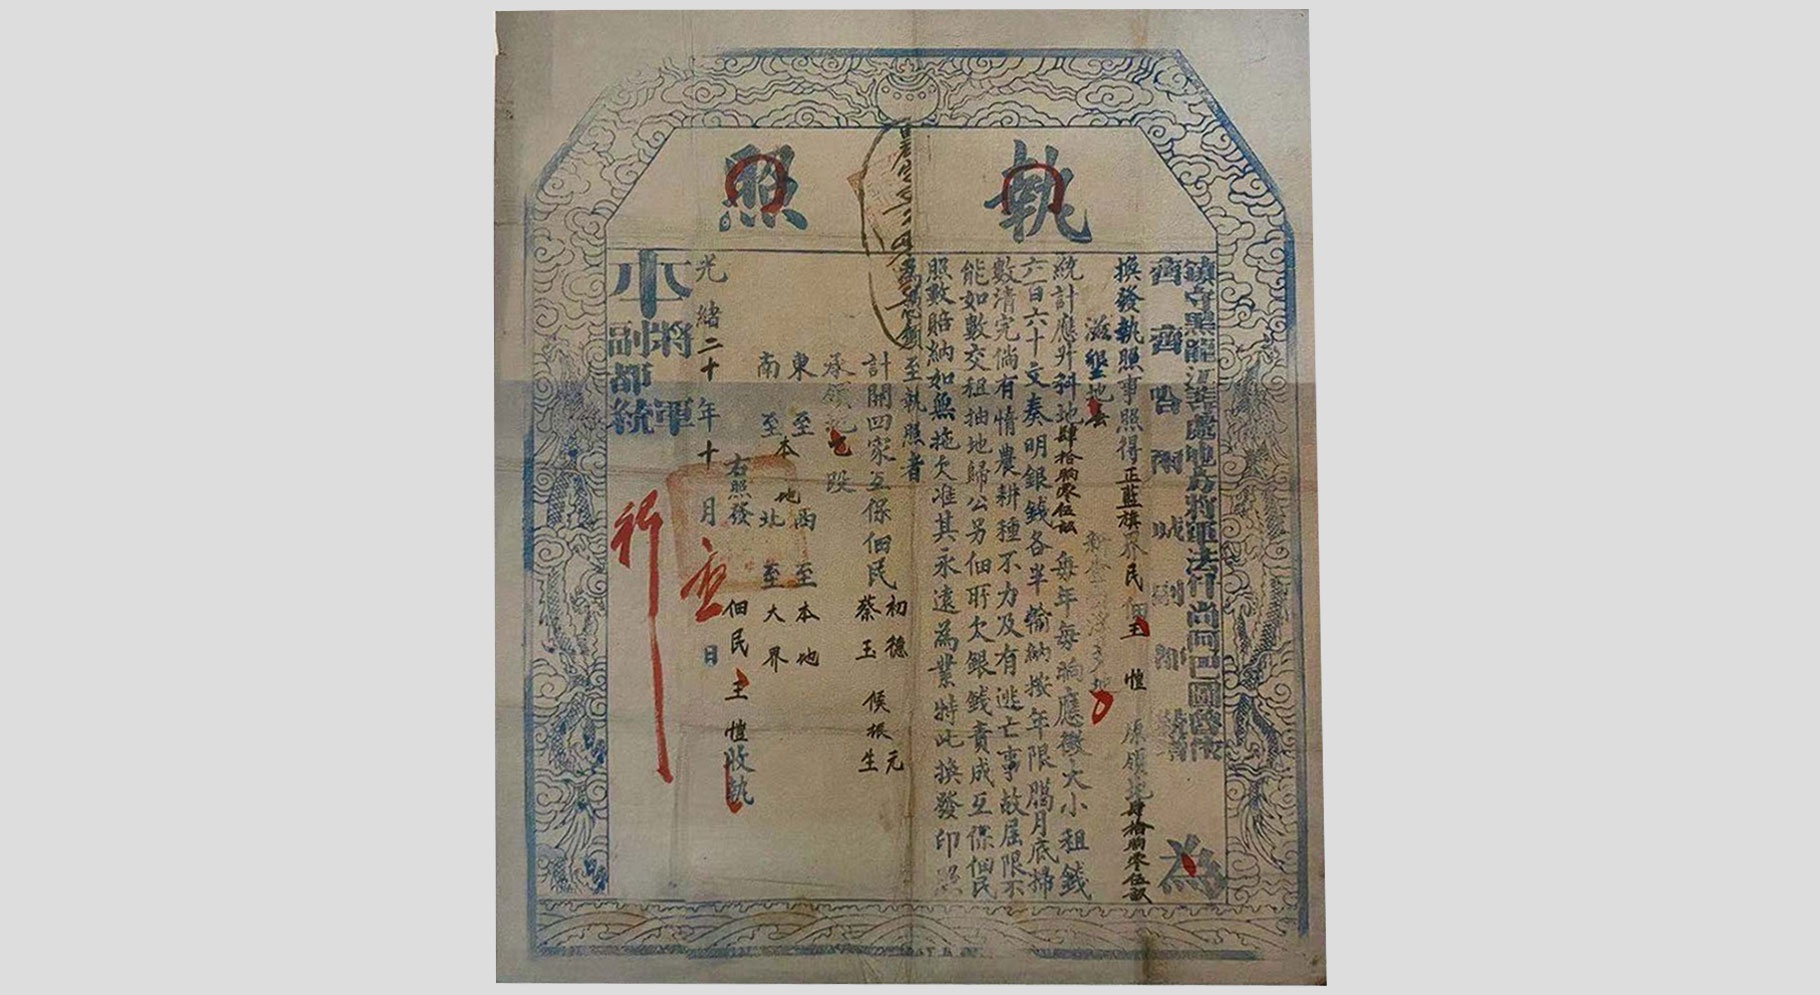 執照
鎮守黑龍江等處地方將軍法什尚阿巴圖魯依
齊齊哈爾城副都
為
換發執照事照得正藍旗界民佃王愷原領地肆拾晌零伍畝
滋墾地 新查 浮多地
統計應升科地肆拾晌零伍畝每年每晌應徵大小租錢
六百六十文奏明銀錢各半輸納按年限臈月底掃
數清完倘有惰農耕種不力及有逃亡事故屆限不
能如數交租抽地歸公另佃所欠銀錢責成互保佃民
照數賠納如無拖欠准其永遠為業特此換發印照
為憑須至執照者
計開四家互保佃民初德 侯振元 蔡玉 生
承領地 段
東至本地西至本地
南至 北至大界
右照發佃民王愷收執
光緒二十年十月 日
將軍
副都統
行